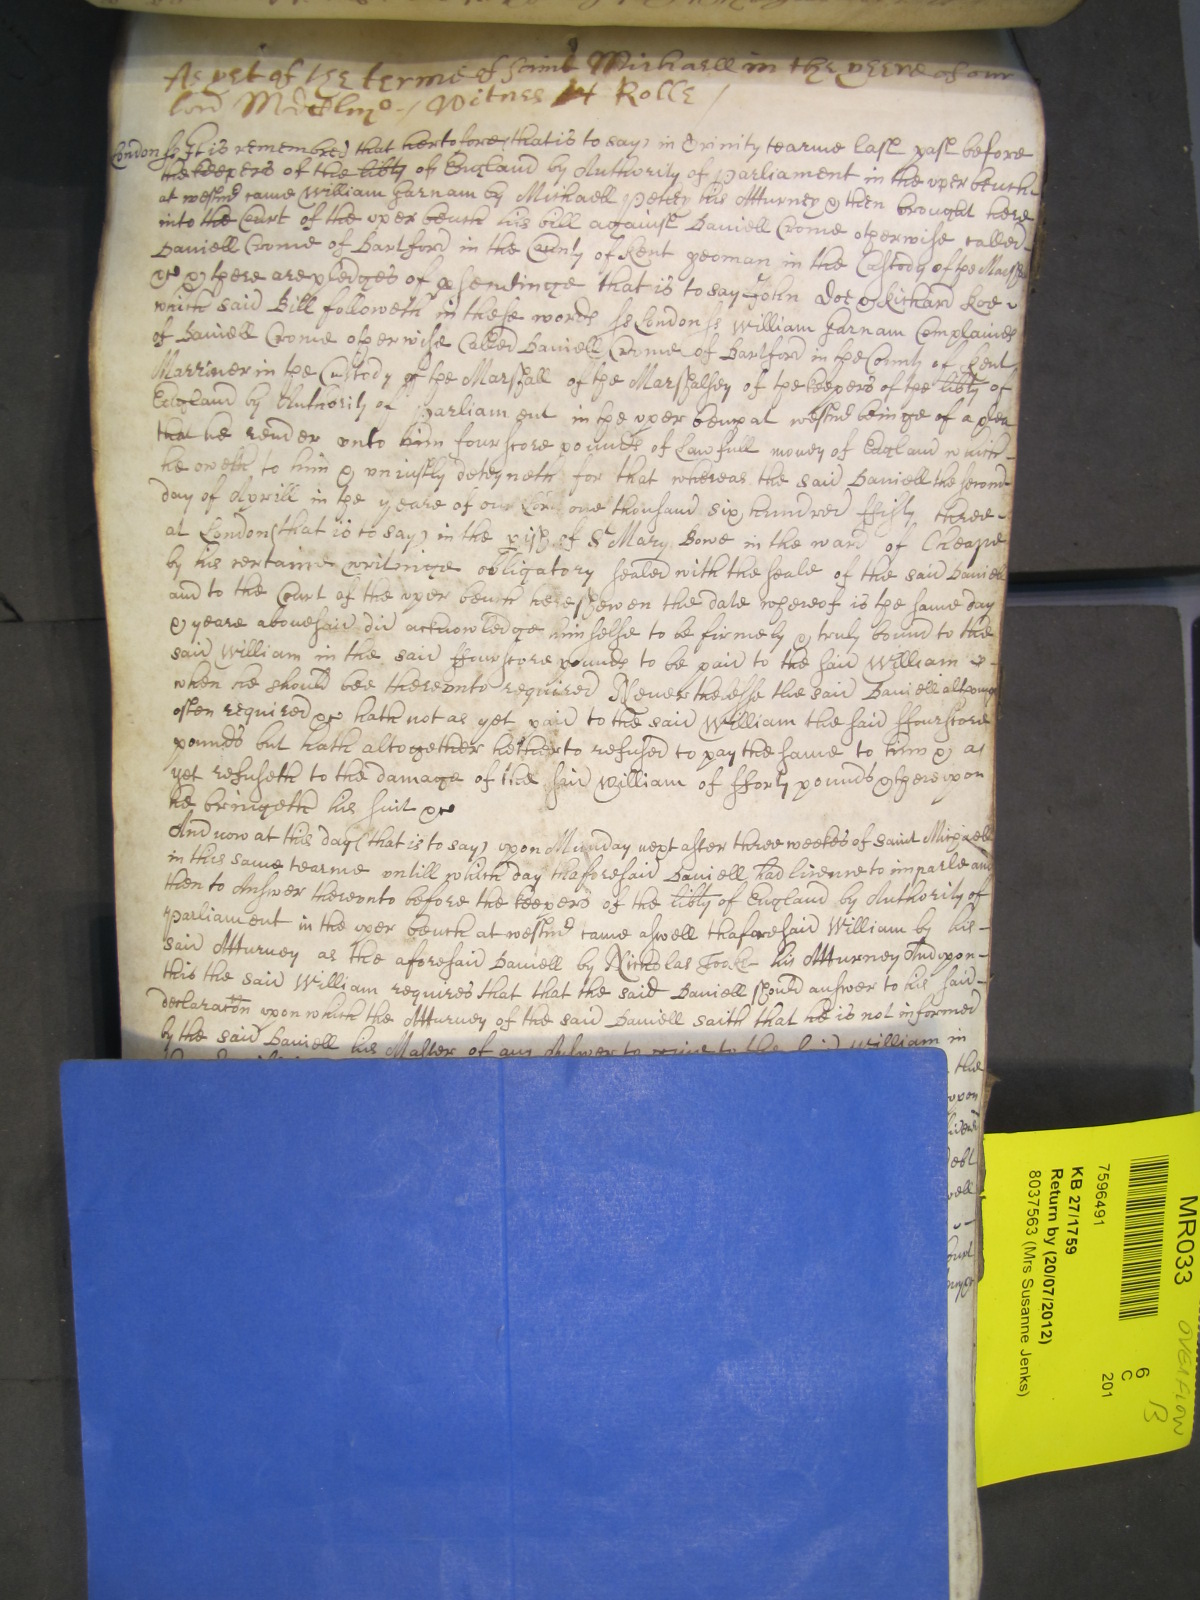 As yet of the terme of Saint Michaell in the yeere of our
lord Witnes H Rolle /
London ss It is remembred that hertofore (that is to say) in Trinity tearme last past before
the keepers of the libty of England by Authority of Parliament in the vper bench
at westmr came William Farnam by Michaell his Atturney & then brought here
into the Court of the vper bench his bill against Daniell Crome otherwise called
Daniell Crome of Dartford in the County of Kent yeoman in the Custody of the Marshall
&c & there are pledges of psecutinge that is to say John Doe & Richard Roe
which said Bill followeth in these words ss London ss William Farnam Complaines
of Daniell Crome otherwise Called Daniell Crome of Dartford in the County of Kent
Marriner in the Custody of the Marshall of the Marshalsey of the keepers of the libty of
England by Authority of Parliament in the vper bench at westmr beinge of a plea
that he render vnto him fourscore pounds of lawfull money of England which
he oweth to him & vniustly deteyneth for that whereas the said Daniell the second
day of Aprill in the yeare of our lord one thousand six hundred ffifty three
at London (that is to say) in the pish of St Mary Bowe in the ward of Cheape
by his certaine writinge obligatory sealed with the seale of the said Daniell
and to the Court of the vper bench here shewen the date whereof is the same day
& yeare abovesaid did acknowledge himselfe to be firmely & truly bound to the
said William in the said ffourscore pounds to be paid to the said William
when he should bee therevnto required Neverthelesse the said Daniell although
often required &c hath not as yet paid to the said William the said ffourscore
pounds but hath altogether hetherto refused to pay the same to him & as
yet refuseth to the damage of the said William of fforty pounds & therevpon
he bringeth his suit &c
And now at this day (that is to say) vpon Munday next after three weekes of saint Michaell
in this same tearme vntill which day thaforesaid Daniell had licence to imparle and
then to Answer therevnto before the keepers of the libty of England by Authority of
Parliament in the vper bench at westmr came aswell thaforesaid William by his
said Atturney as the aforesaid Daniell by Nicholas his Atturney And vpon
this the said William requires that that the said Daniell should answer to his said
declaracon vpon which the Atturney of the said Daniell saith that he is not informed
by the said Daniell his Master of any Answer to to the said William in
the
vpon
debt
well
MR033
OVERFLOW
13
6
C
201
7596491
KB 27/1759
Return by (20/07/2012)
8037563 (Mrs Susanne Jenks)